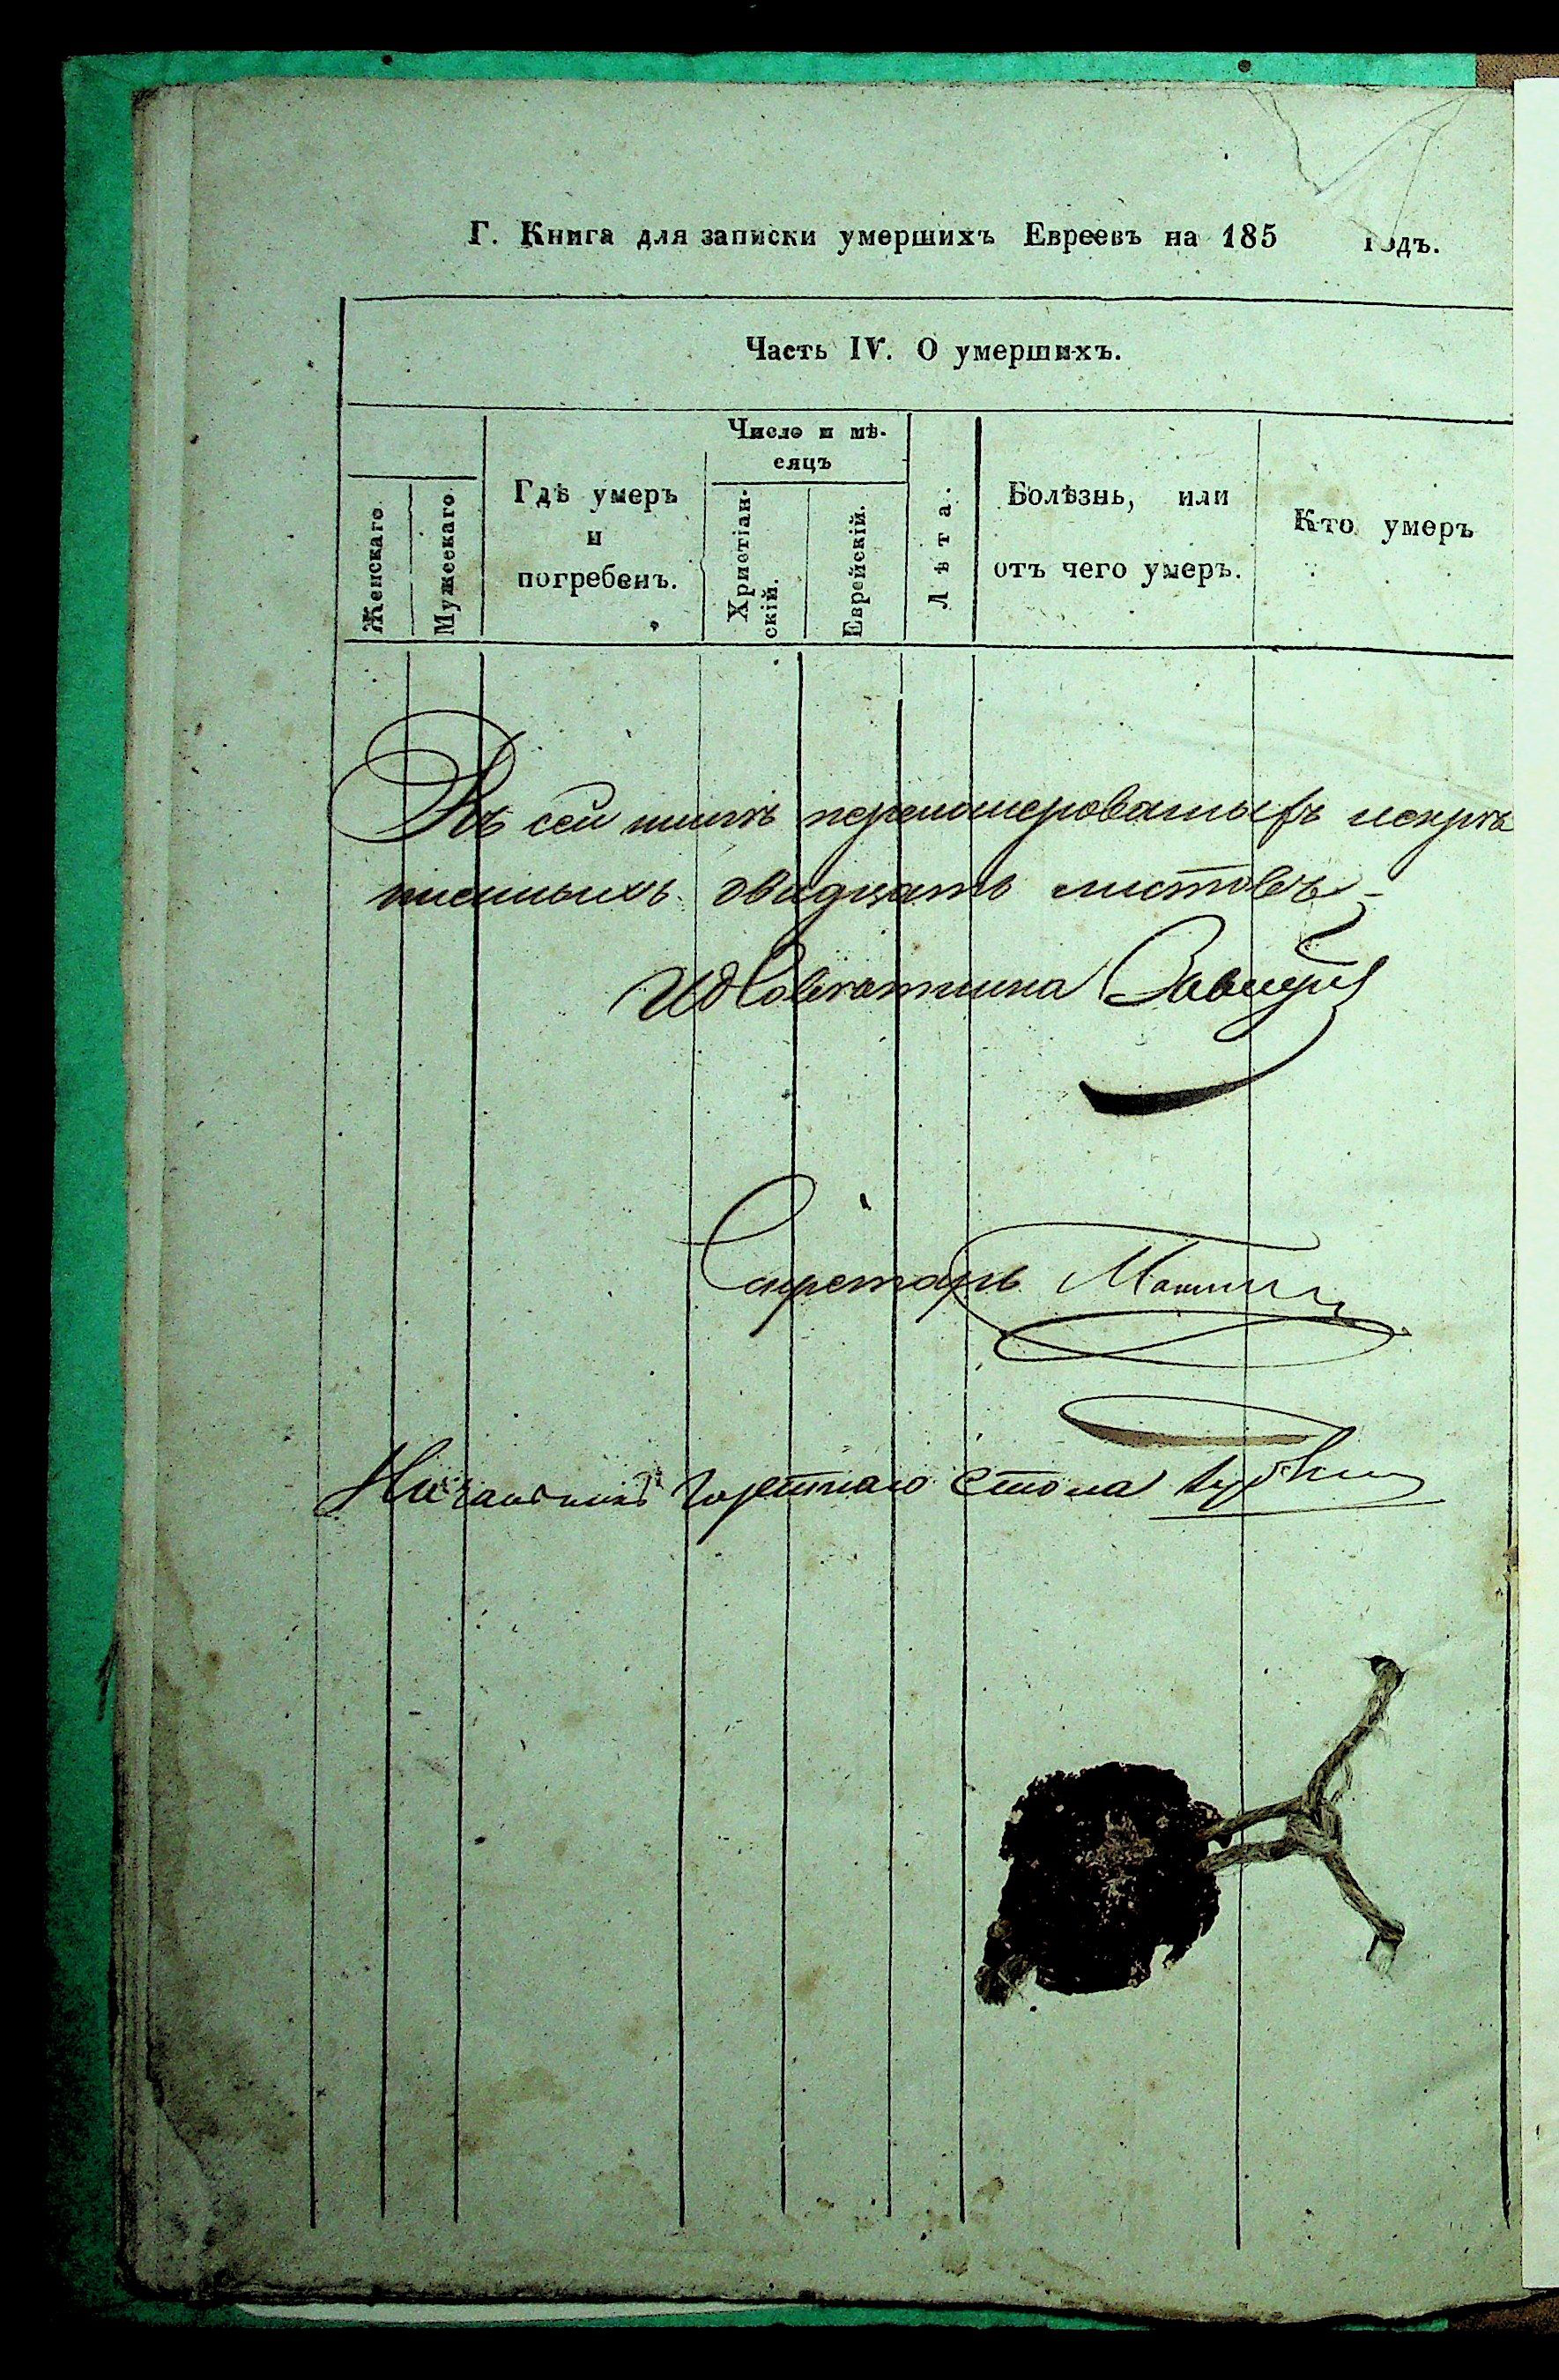 Г. Книга для записки умершихъ Евреевъ на 185 годъ.
Часть IV. О умершихъ.
Женскаго
Мужескаго
Гдѣ умеръ
и
погребенъ.
Число и мѣ-
сяцъ
Христіан-
скій.
Еврейскій.
Лѣта.
Болѣзнь, или
отъ чего умеръ.
Кто умеръ
Въ сей книгѣ перномерованныхъ
двадцать листовъ
Секретарь
Начальникъ стола